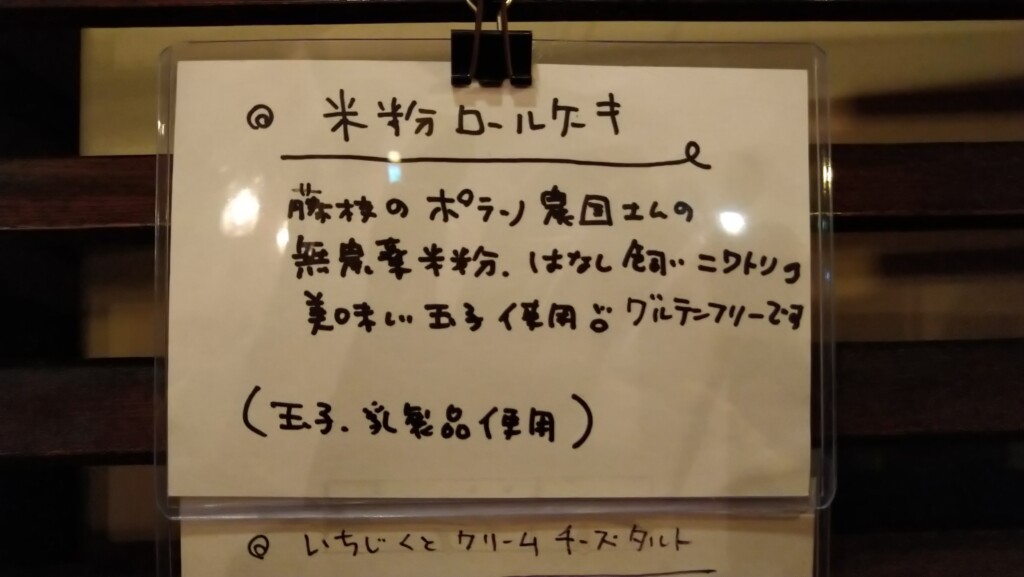 @ 米粉ロールケーキ
藤枝の ポラーノ 農園さんの
無農薬米粉、はなし飼いニワトリの
美味しい玉子使用。グルテンフリーです
(玉子、乳製品使用)
@ いちじくとクリームチーズタルト